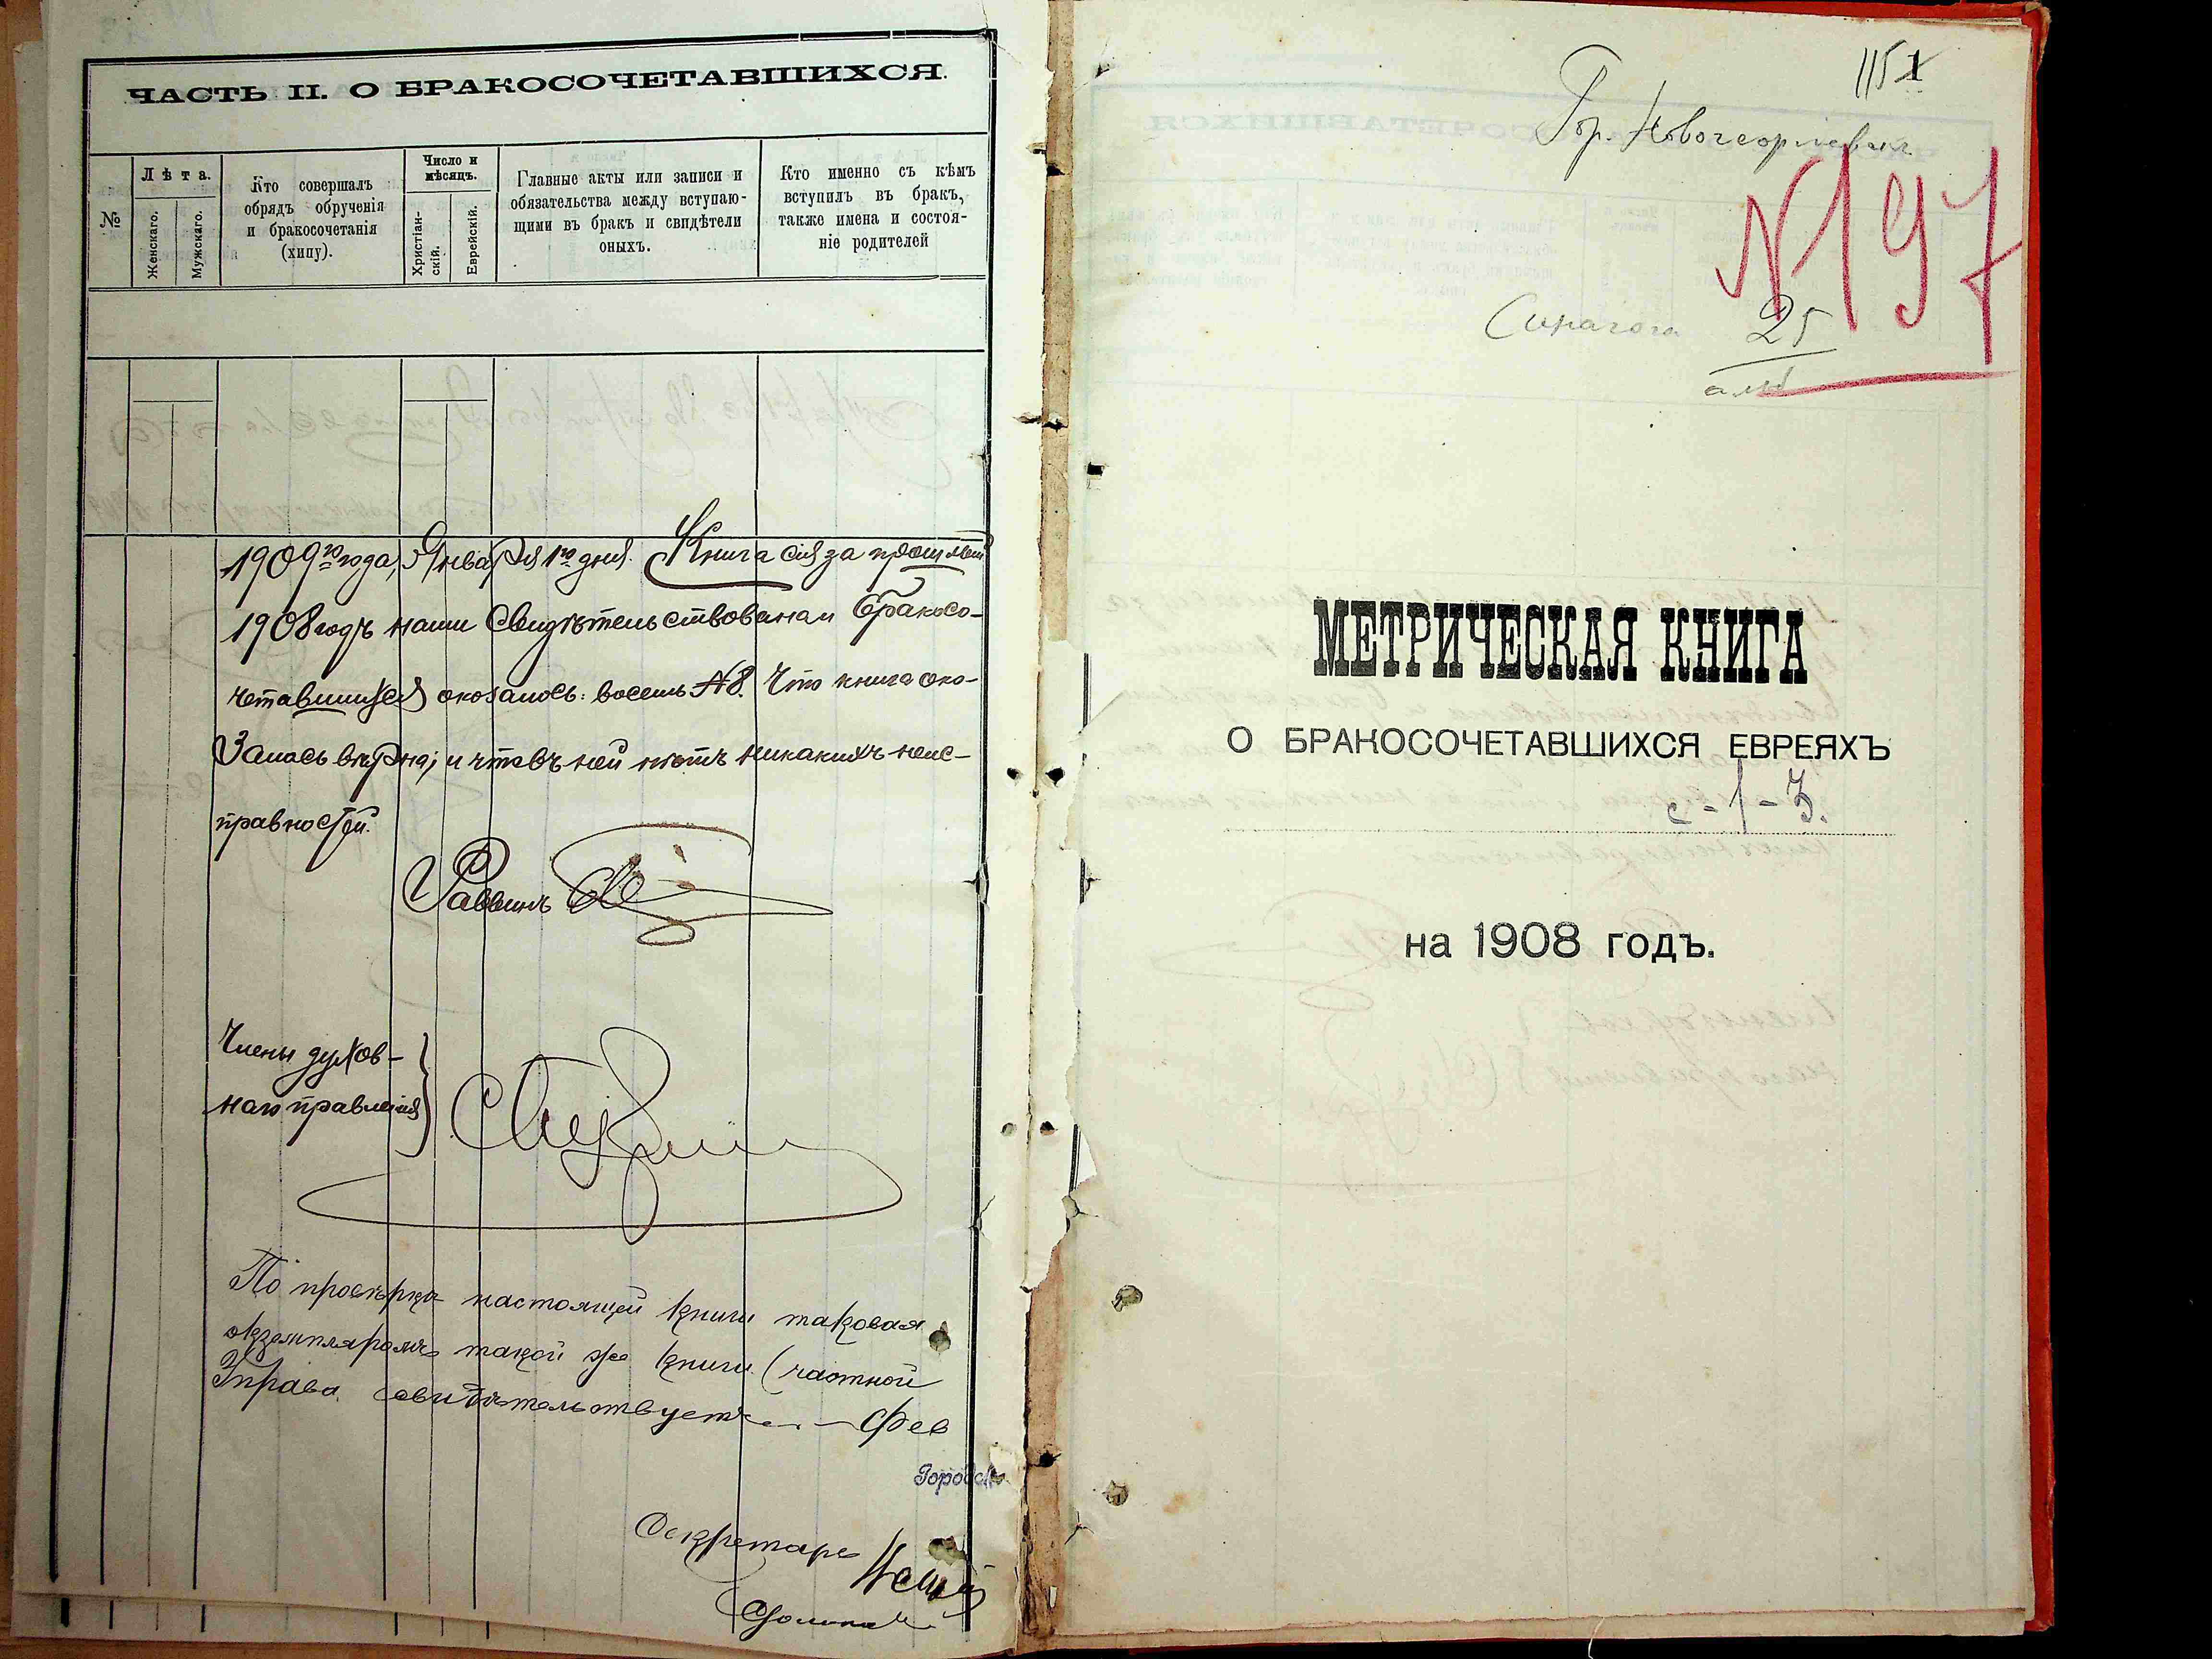 ЧАСТЬ II. О БРАКОСОЧЕТАВШИХСЯ.
№
Лѣта.
Женскаго.
Мужскаго.
Кто совершалъ
обрядъ обрученія
и бракосочетанія
(хипу).
Число и
мѣсяцъ.
Христіан-
скій.
Еврейскій.
Главные акты или записи и
обязательства между вступаю-
щими въ бракъ и свидѣтели
оныхъ.
Кто именно съ кѣмъ
вступилъ въ бракъ,
также имена и состоя-
ніе родителей
1909го года, Января 1го дня. Книга сія за прошлый
1908 годъ нами Свидѣтельствована и Бракосо-
четавшихся оказалось: восемь №8. Что книга ока-
залась вѣрна, и что въ ней нѣтъ никакихъ неис-
правностей.
Раввинъ
Члены духов-
наго правленія
По провѣркѣ настоящей книги таковая
экземпляромъ такой же книги (частной
Управа свидѣтельствуетъ. — Фев
Городск
Секретарь
1151
Гор. Новогеоргіевск
N197
Синагога 25
МЕТРИЧЕСКАЯ КНИГА
О БРАКОСОЧЕТАВШИХСЯ ЕВРЕЯХЪ
с-1-3.
на 1908 годъ.